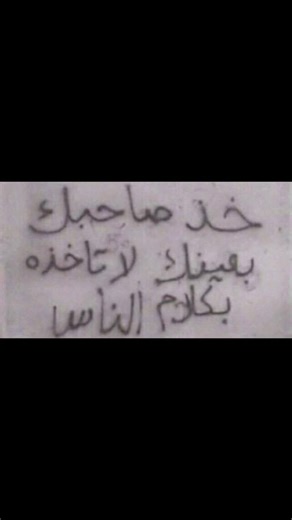 خذ صاحبك
بعينك لا تاخذه
بكلام الناس